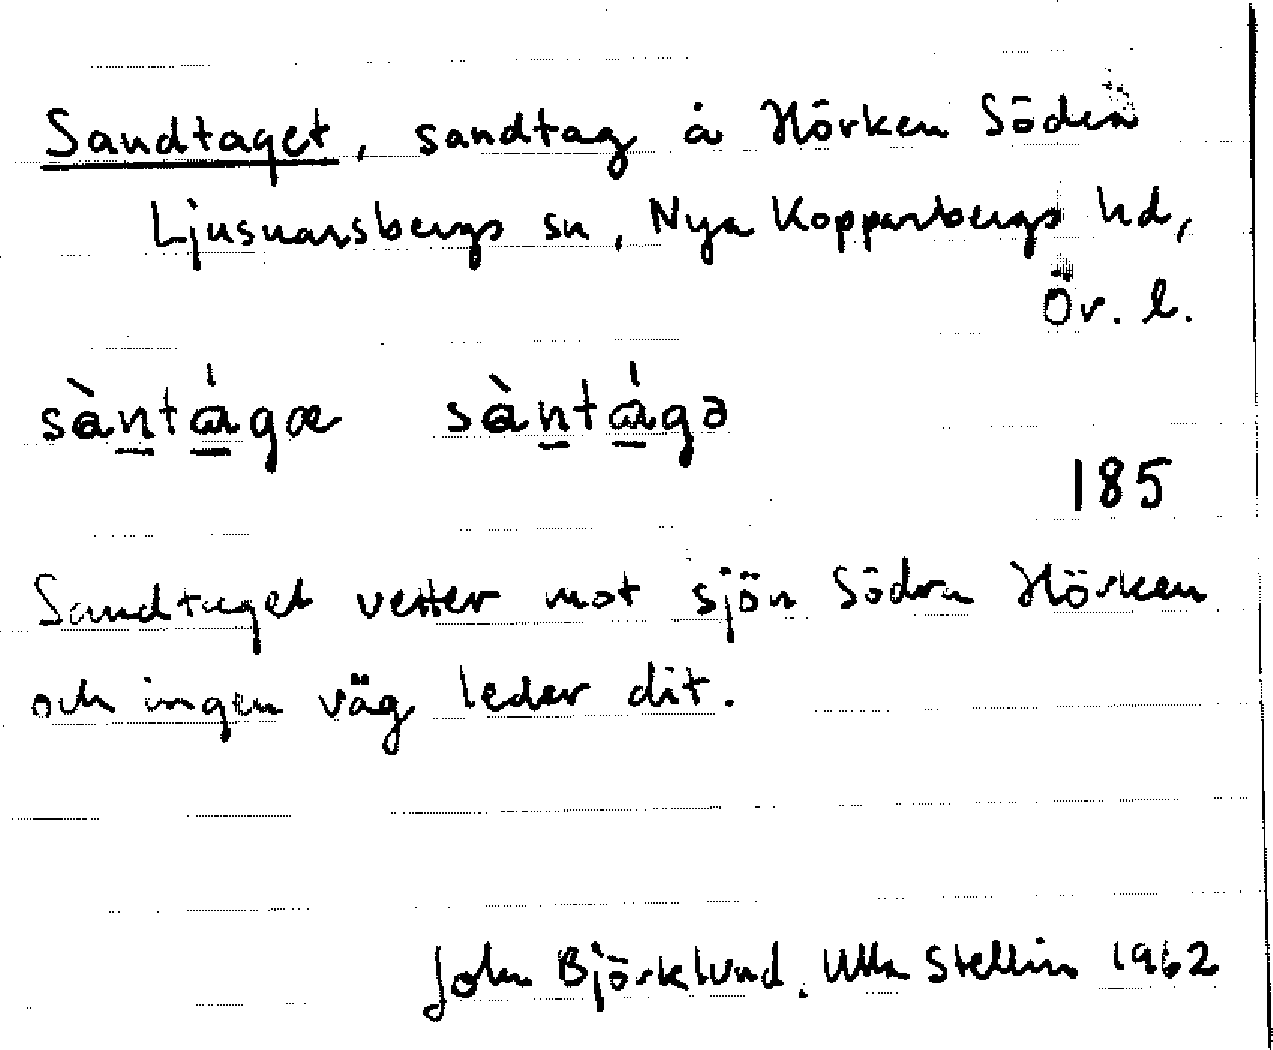 Sandtaget, sandtag å Hörken Södra
Ljusnarsbergs sn, Nya Kopparbergs hd,
Ör. l.
sàntágæ sàntágə
185
Sandtaget vetter mot sjön Södra Hörken
och ingen väg leder dit.
John Björklund. Ulla Stellin 1962